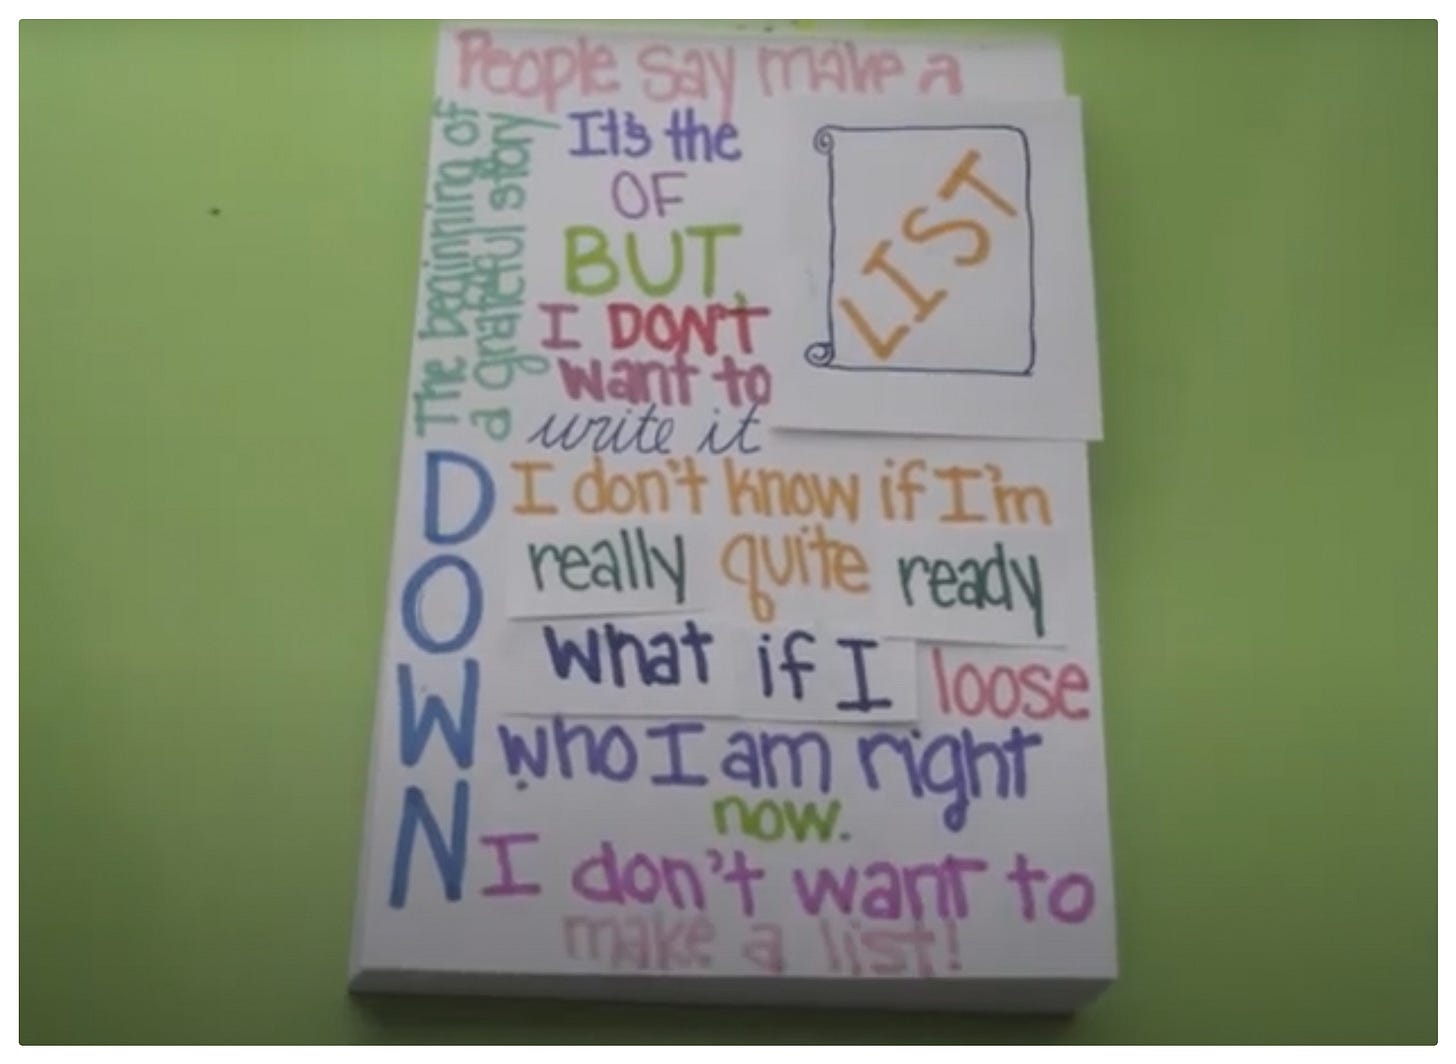 People say make a
LIST
It's the
OF
The beginning of
a grateful story
BUT,
I DON'T
want to
write it
DOWN
I don't know if I'm
really quite ready
what if I loose
who I am right
now.
I don't want to
make a list!